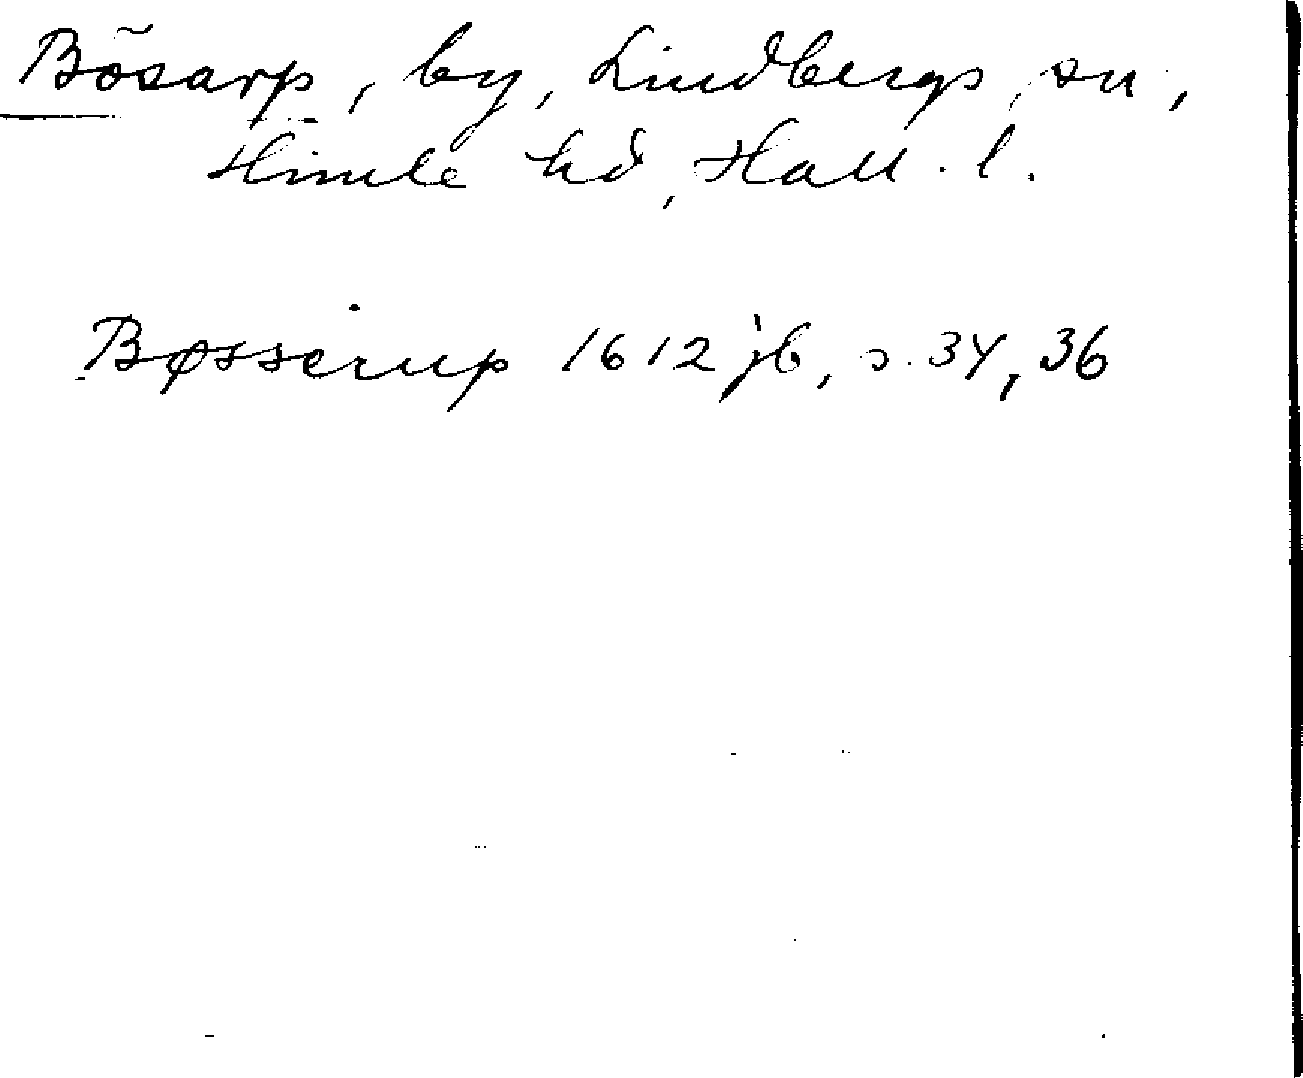 Bösarp, by, Lindbergs sn,
Himle hd, Hall. l.
Bøsserup 1612 jb, s. 34, 36